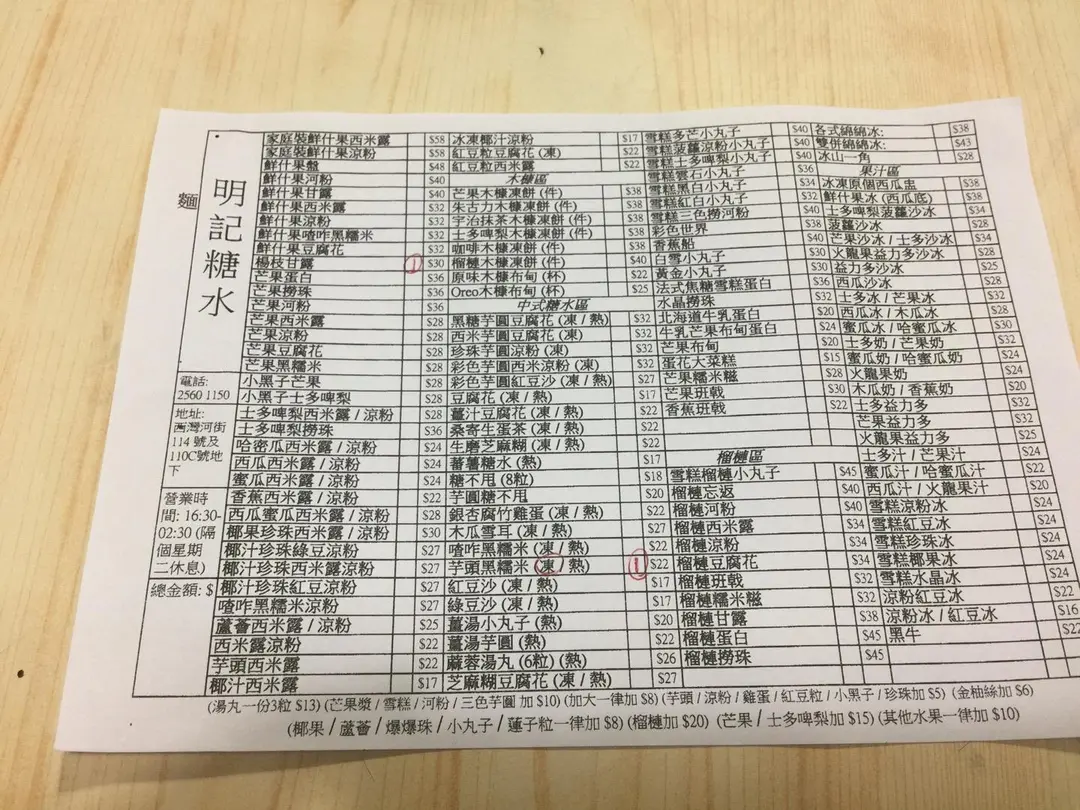 麵
明記糖水
電話:
2560 1150
地址:
西灣河街
114 號及
110C號地
下
營業時
間: 16:30-
02:30 (隔
個星期
二休息)
總金額: $
家庭裝鮮什果西米露 $58
家庭裝鮮什果涼粉 $58
鮮什果盤 $48
鮮什果河粉 $40
鮮什果甘露 $40
鮮什果西米露 $32
鮮什果涼粉 $32
鮮什果喳咋黑糯米 $32
鮮什果豆腐花 $32
楊枝甘露 1 $30
芒果蛋白 $36
芒果撈珠 $36
芒果河粉 $36
芒果西米露 $28
芒果涼粉 $28
芒果豆腐花 $28
芒果黑糯米 $28
小黑子芒果 $28
小黑子士多啤梨 $28
士多啤梨西米露 / 涼粉 $28
士多啤梨撈珠 $36
哈密瓜西米露 / 涼粉 $24
西瓜西米露 / 涼粉 $24
蜜瓜西米露 / 涼粉 $24
香蕉西米露 / 涼粉 $22
西瓜蜜瓜西米露 / 涼粉 $28
椰果珍珠西米露 / 涼粉 $30
椰汁珍珠綠豆涼粉 $27
椰汁珍珠西米露涼粉 $27
椰汁珍珠紅豆涼粉 $27
喳咋黑糯米涼粉 $27
蘆薈西米露 / 涼粉 $25
西米露涼粉 $22
芋頭西米露 $22
椰汁西米露 $17
冰凍椰汁涼粉 $17
紅豆粒豆腐花 (凍) $22
紅豆粒西米露 $22
木糠區
芒果木糠凍餅 (件) $38
朱古力木糠凍餅 (件) $38
宇治抹茶木糠凍餅 (件) $38
士多啤梨木糠凍餅 (件) $38
咖啡木糠凍餅 (件) $38
榴槤木糠凍餅 (件) $40
原味木糠布甸 (杯) $22
Oreo木糠布甸 (杯) $25
中式糖水區
黑糖芋圓豆腐花 (凍 / 熱) $32
西米芋圓豆腐花 (凍) $32
珍珠芋圓涼粉 (凍) $32
彩色芋圓西米涼粉 (凍) $32
彩色芋圓紅豆沙 (凍 / 熱) $27
豆腐花 (凍 / 熱) $17
薑汁豆腐花 (凍 / 熱) $22
桑寄生蛋茶 (凍 / 熱) $22
生磨芝麻糊 (凍 / 熱) $22
蕃薯糖水 (熱) $17
糖不甩 (8粒) $18
芋圓糖不甩 $20
銀杏腐竹雞蛋 (凍 / 熱) $22
木瓜雪耳 (凍 / 熱) $27
喳咋黑糯米 (凍 / 熱) $22
芋頭黑糯米 (凍 / 熱) 1 $22
紅豆沙 (凍 / 熱) $17
綠豆沙 (凍 / 熱) $17
薑湯小丸子 (熱) $20
薑湯芋圓 (熱) $22
蔴蓉湯丸 (6粒) (熱) $26
芝麻糊豆腐花 (凍 / 熱) $27
雪糕多芒小丸子 $40
雪糕菠蘿涼粉小丸子 $40
雪糕士多啤梨小丸子 $40
雪糕雲石小丸子 $36
雪糕黑白小丸子 $34
雪糕紅白小丸子 $32
雪糕三色撈河粉 $40
彩色世界 $38
香蕉船 $40
白雪小丸子 $30
黃金小丸子 $30
法式焦糖雪糕蛋白 $36
水晶撈珠 $32
北海道牛乳蛋白 $32
牛乳芒果布甸蛋白 $24
芒果布甸 $20
蛋花大菜糕 $15
芒果糯米糍 $28
芒果班戟 $30
香蕉班戟 $22
榴槤區
雪糕榴槤小丸子 $45
榴槤忘返 $40
榴槤河粉
榴槤西米露 $34
榴槤涼粉
榴槤豆腐花 $34
榴槤班戟
榴槤糯米糍 $32
榴槤甘露 $38
榴槤蛋白 $45
榴槤撈珠 $45
各式綿綿冰: $38
雙併綿綿冰: $43
冰山一角 $28
果汁區
冰凍原個西瓜盅 $38
鮮什果冰 (西瓜底) $38
士多啤梨菠蘿沙冰 $34
菠蘿沙冰 $28
芒果沙冰 / 士多沙冰 $34
火龍果益力多沙冰 $28
益力多沙冰 $25
西瓜沙冰 $28
士多冰 / 芒果冰 $28
西瓜冰 / 木瓜冰 $28
蜜瓜冰 / 哈蜜瓜冰 $30
士多奶 / 芒果奶 $30
蜜瓜奶 / 哈蜜瓜奶 $24
火龍果奶 $24
木瓜奶 / 香蕉奶 $20
士多益力多 $32
芒果益力多 $32
火龍果益力多 $25
士多汁 / 芒果汁 $24
蜜瓜汁 / 哈蜜瓜汁 $22
西瓜汁 / 火龍果汁 $20
雪糕涼粉冰 $24
雪糕紅豆冰 $24
雪糕珍珠冰 $24
雪糕椰果冰 $24
雪糕水晶冰 $24
涼粉紅豆冰 $22
涼粉冰 / 紅豆冰 $16
黑牛 $22
(湯丸一份3粒 $13) (芒果漿 / 雪糕 / 河粉 / 三色芋圓 加 $10) (加大一律加 $8) (芋頭 / 涼粉 / 雞蛋 / 紅豆粒 / 小黑子 / 珍珠加 $5) (金柚絲加 $6)
(椰果 / 蘆薈 / 爆爆珠 / 小丸子 / 蓮子粒一律加 $8) (榴槤加 $20) (芒果 / 士多啤梨加 $15) (其他水果一律加 $10)